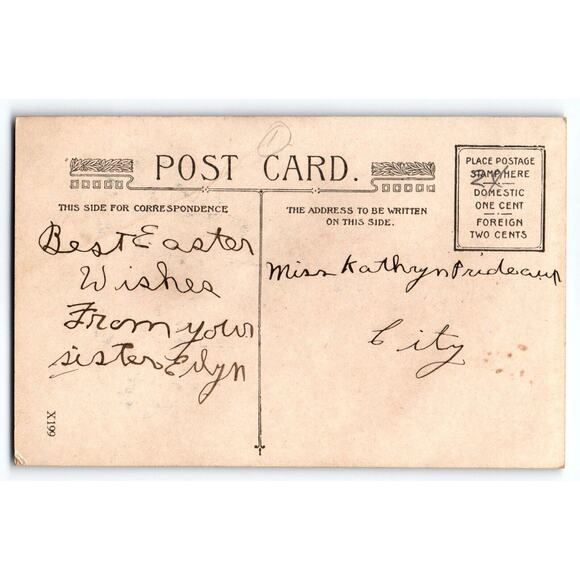 POST CARD.
THIS SIDE FOR CORRESPONDENCE
THE ADDRESS TO BE WRITTEN
ON THIS SIDE.
PLACE POSTAGE
STAMP HERE
DOMESTIC
ONE CENT
FOREIGN
TWO CENTS
Best Easter
Wishes
From your
sister Edyn
Miss Kathryn Prideaux
City
X199